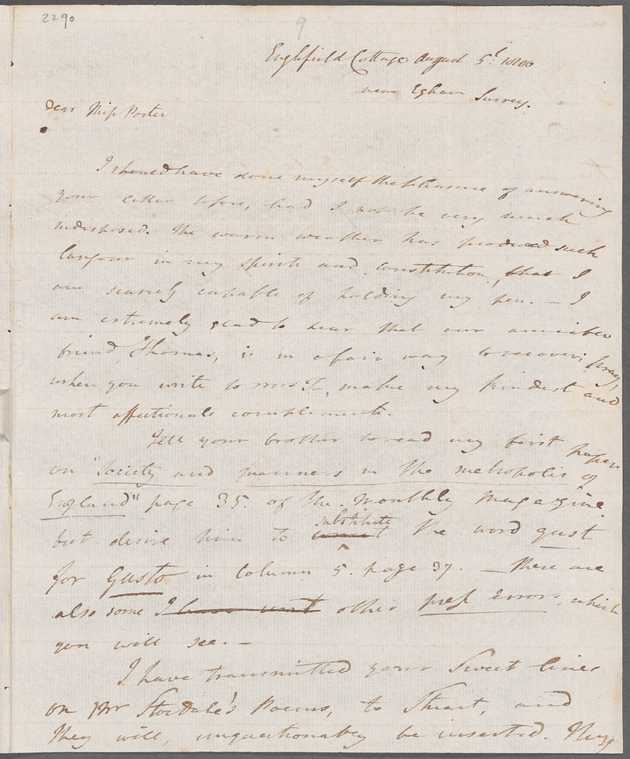 2290
9
Englefield Cottage August 5th 1800
near Egham Surrey.
Dear Miss Porter
I should have done myself the pleasure of answering
your letter before, had I not be very much
indisposed. The warm weather has produced such
langour in my spirits and constitution, that I
am scarcely capable of holding my pen. — I
am extremely glad to hear that our amiable
friend Thomas, is in a fair way to recover; pray,
when you write to make my kindest and
most affectionate compliments.
Tell your brother to read my first papers
on "Society and manners in the metropolis of
England" page 35. of the Monthly Magazine
but desire him to substitute the word gust
for Gusto in column 5. page 37. — There are
also some I have other press Errors, which
you will see. —
I have transmitted your Sweet lines
on Mr Stockdale's Poems, to Stuart, and
They will, unquestionably be inserted. They